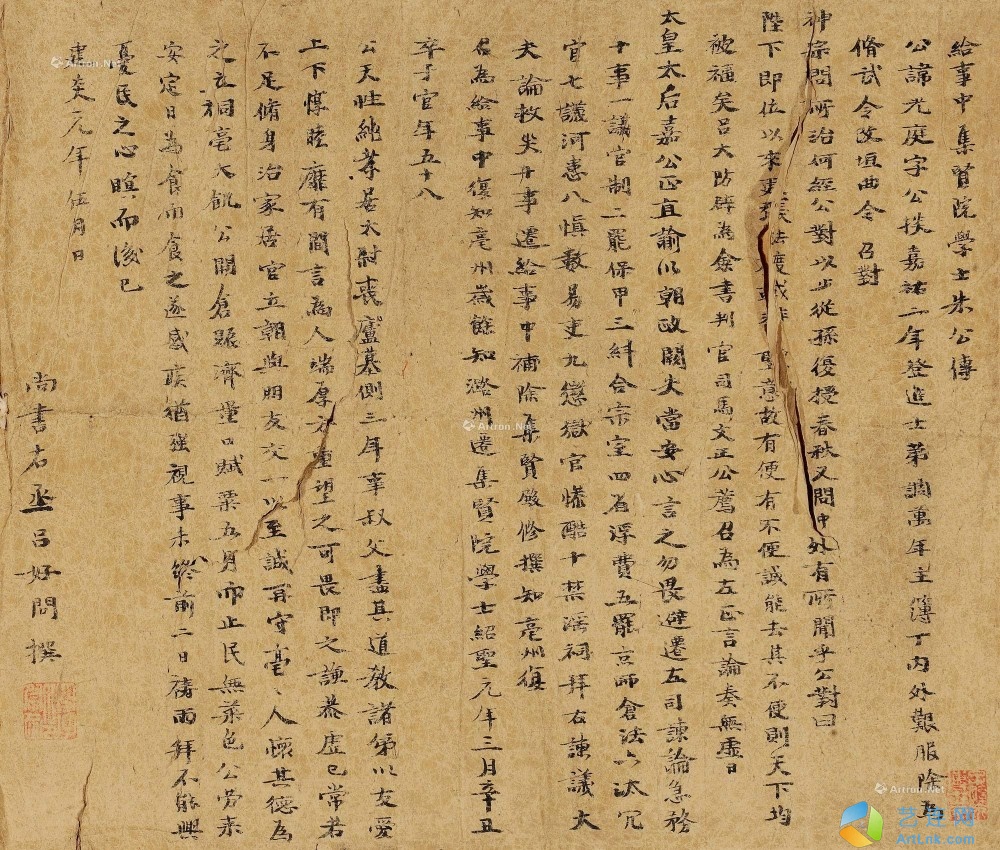 給事中集賢院學士朱公傳
公諱光庭字公掞嘉祐二年登進士第調萬年主簿丁內外艱服除五
脩試令改垣曲令 召對
神宗問所治何經公對以少從孫復授春秋又問中外有所聞乎公對曰
陛下即位以來更張法度 聖意故有便有不便誠能去其不便則天下均
被福矣呂大防辟為僉書判官司馬文正公薦召為左正言論奏無虛日
太皇太后嘉公正直諭以朝政闕失當安心言之勿畏避遷左司諫論急務
十事一議官制二罷保甲三糾合宗室四省浮費五罷京師倉法六汰冗
官七議河患八慎數易吏九懲獄官慘酷十禁淫祠拜右諫議大
夫論救失廾事遷給事中補除集賢殿修撰知亳州復
召為給事中復知亳州歲餘知潞州遷集賢院學士紹聖元年三月辛丑
卒于官年五十八
公天性純孝居太尉喪廬墓側三年事叔父盡其道教諸弟以友愛
上下惇睦靡有間言為人端厚方重望之可畏即之謙恭虛己常若
不足脩身治家居官立朝與朋友交一以至誠再守亳亳人懷其德為
之立祠亳大饑公開倉賑濟量口賦粟五月而止民無菜色公勞來
安定日為食而食之遂感疾猶強視事未終前二日禱雨拜不能興
憂民之心瞑而後已
建炎元年伍月日
尚書右丞呂好問撰
Artron.Net
艺连网
ArtLnk.com